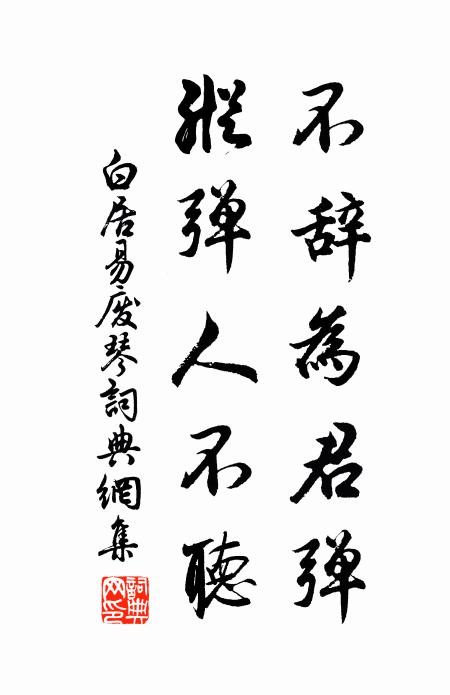 不辞為君弹
縱弹人不聽
白居易廢琴詞典網集
詞典網印